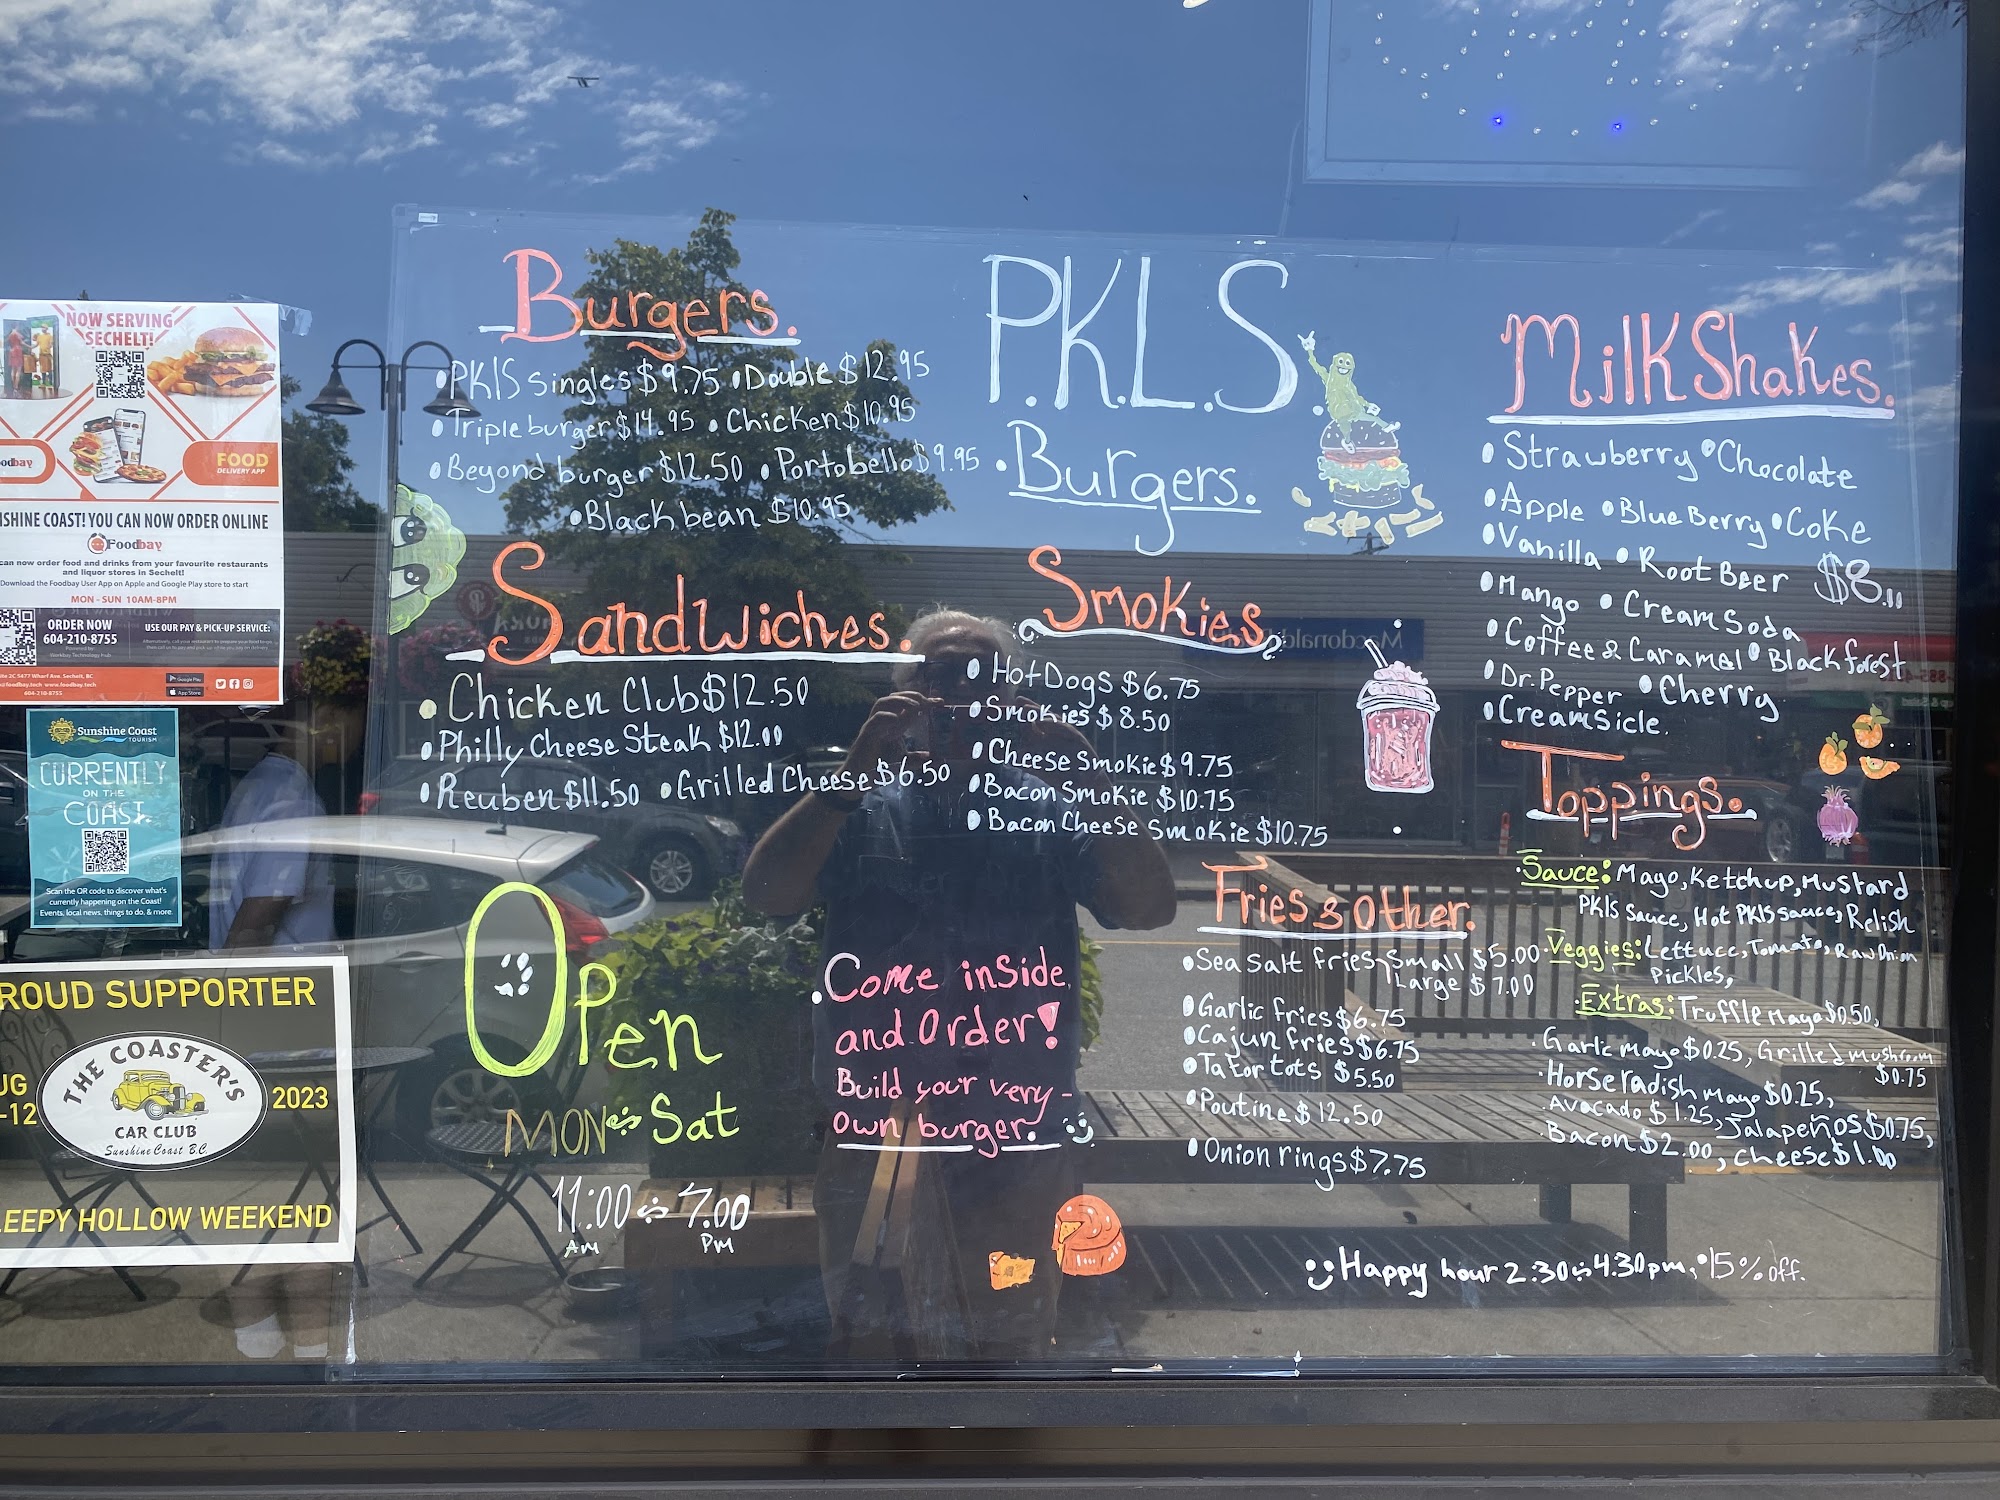 Burgers.
•PKlS singles $9.75 •Double $12.95
•Triple burger $14.95 •Chicken $10.95
•Beyond burger $12.50 •Portobello $9.95
•Black bean $10.95
Sandwiches.
•Chicken Club $12.50
•Philly Cheese Steak $12.00
•Reuben $11.50 •Grilled Cheese $6.50
Open
MON Sat
11:00 7.00
AM PM
P.K.L.S.
•Burgers.
Smokies
•Hot Dogs $6.75
•Smokies $8.50
•Cheese Smokie $9.75
•Bacon Smokie $10.75
•Bacon Cheese Smokie $10.75
•Come inside,
and Order!
Build your very-
own burger.
Fries & other.
•Sea Salt fries Small $5.00
Large $7.00
•Garlic fries $6.75
•Cajun fries $6.75
•Tator tots $5.50
•Poutine $12.50
•Onion rings $7.75
MilKShakes.
•Strawberry •Chocolate
•Apple •BlueBerry •Coke
•Vanilla •Root Beer $8.00
•Mango •Cream Soda
•Coffee & Caramel •Black forest
•Dr. Pepper •Cherry
•Creamsicle.
Toppings.
•Sauce: Mayo, Ketchup, Mustard
PKls sauce, Hot PKls sauce, Relish
•Veggies: Lettuce, Tomato, Raw Onion
Pickles,
•Extras: Truffle Mayo $0.50,
•Garlic mayo $0.25, Grilled Mushroom
$0.75
•Horseradish mayo $0.25,
•Avocado $1.25, Jalapeños $0.75,
•Bacon $2.00, cheese $1.00
Happy hour 2:30 4:30pm, •15% off.
NOW SERVING
SECHELT!
FOOD
DELIVERY APP
SHINE COAST! YOU CAN NOW ORDER ONLINE
Foodbay
can now order food and drinks from your favourite restaurants
and liquor stores in Sechelt!
Download the Foodbay User App on Apple and Google Play store to start
MON - SUN 10AM-8PM
ORDER NOW
604-210-8755
Powered by
Workbay Technology Hub
USE OUR PAY & PICK-UP SERVICE:
2C 5477 Wharf Ave. Sechelt, BC
www.foodbay.tech
604-210-8755
Google Play
App Store
Sunshine Coast
TOURISM
CURRENTLY
ON THE
COAST
Scan the QR code to discover what's
currently happening on the Coast!
Events, local news, things to do, & more.
ROUD SUPPORTER
UG
-12
THE COASTER'S
CAR CLUB
Sunshine Coast B.C.
2023
LEEPY HOLLOW WEEKEND